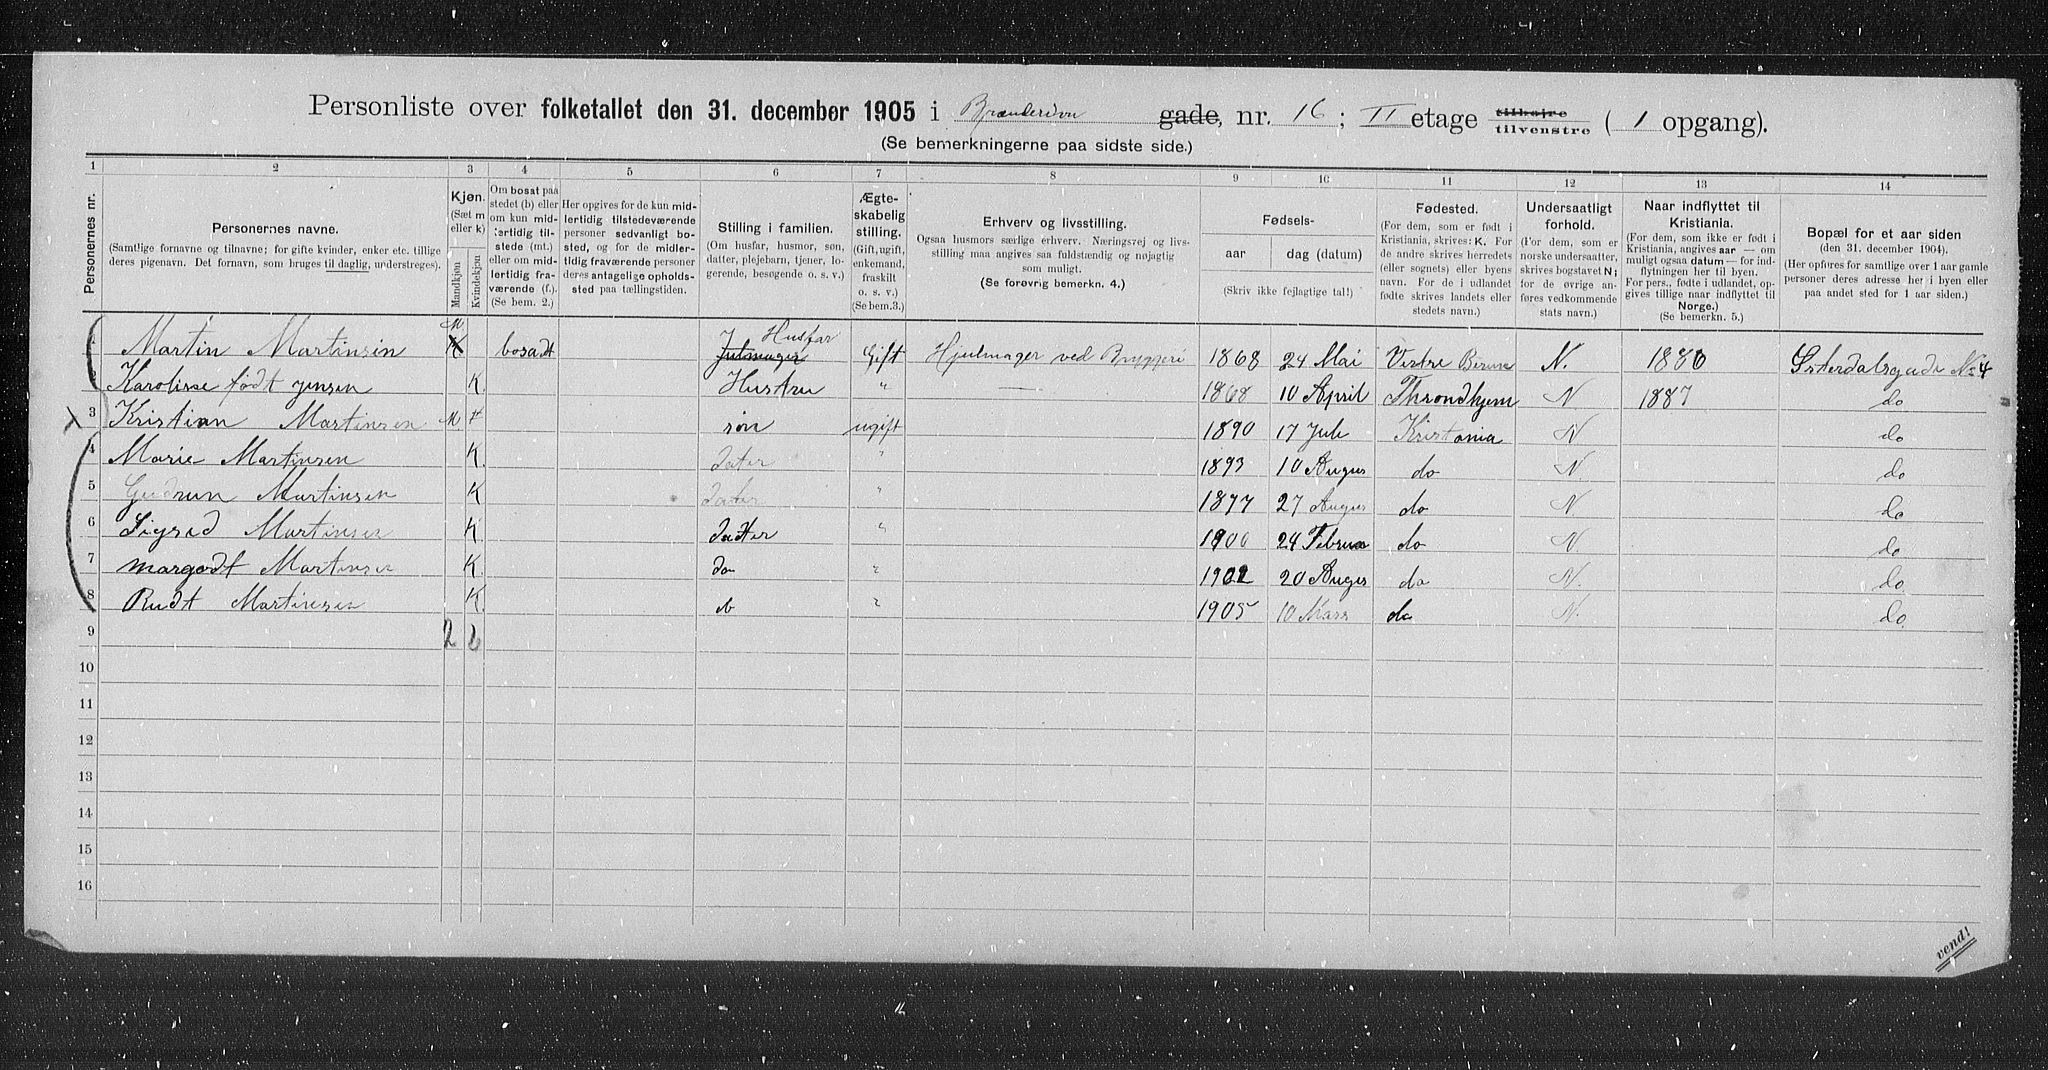 Personliste over folketallet den 31. december 1905 i Brænderivn gade, nr. 16; II etage tilhøjre tilvenstre (1 opgang).
(Se bemerkningerne paa sidste side.)
1 2 3 4 5 6 7 8 9 10 11 12 13 14
Personernes nr.
Personernes navne.
(Samtlige fornavne og tilnavne; for gifte kvinder, enker etc. tillige deres pigenavn. Det fornavn, som bruges til daglig, understreges).
Kjøn.
(Sæt m eller k)
Mandkjøn Kvindekjøn
Om bosat paa stedet (b) eller om kun midlertidig tilstede (mt.) eller om midlertidig fraværende (f.). (Se bem. 2.)
Her opgives for de kun midlertidig tilstedeværende personer sedvanligt bosted, og for de midlertidig fraværende personer deres antagelige opholdssted paa tællingstiden.
Stilling i familien.
(Om husfar, husmor, søn, datter, plejebarn, tjener, logerende, besøgende o. s. v.)
Ægteskabelig stilling.
(Gift, ugift, enkemand, fraskilt o. s. v.)
(Se bem.3.)
Erhverv og livsstilling.
Ogsaa husmors særlige erhverv. Næringsvej og livsstilling maa angives saa fuldstændig og nøjagtig som muligt.
(Se forøvrig bemerkn. 4.)
Fødsels-
aar dag (datum)
(Skriv ikke fejlagtige tal!)
Fødested.
(For dem, som er født i Kristiania, skrives: K. For de andre skrives herredets (eller sognets) eller byens navn. For de i udlandet fødte skrives landets eller stedets navn.)
Undersaatligt forhold.
(For dem, som er norske undersaatter, skrives bogstavet N; for de øvrige anføres vedkommende stats navn.)
Naar indflyttet til Kristiania.
(For dem, som ikke er født i Kristiania, angives aar — om muligt ogsaa datum — for indflytningen her til byen. For pers., fødte i udlandet, opgives tillige naar indflyttet til Norge.) (Se bemerkn. 5.)
Bopæl for et aar siden
(den 31. december 1904).
(Her opføres for samtlige over 1 aar gamle personer deres adresse her i byen eller paa andet sted for 1 aar siden.)
1 Martin Martinsen M K bosadt Julmager Husfar Gift Hjulmager ved Bryggeri 1868 24 Mai Vestre Berum N. 1886 Østerdalsgade No 4
2 Karoline født Jensen K Hustru " — 1868 10 April Throndhjem N 1887 do
3 Kristian Martinsen M søn ugift 1890 17 Juli Kristania N do
4 Marie Martinsen K. dater " 1893 10 Augus do N do
5 Gudrun Martinsen K dater " 1877 27 Augus do N do
6 Sigred Martinsen K datter " 1900 24 Februa do N do
7 margodt Martinsen K do " 1902 20 Auges do N. do
8 Rudt Martinsen K do " 1905 10 Mars do N. do
9 2 6
10
11
12
13
14
15
16
vend!